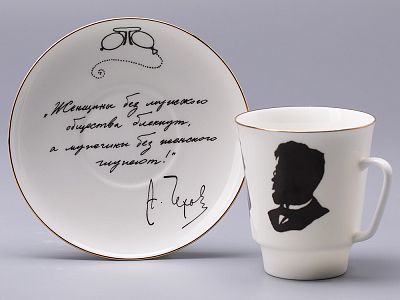 „Женщины без мужского
общества блекнут,
а мужчины без женского
глупеют!"
А. Чехов